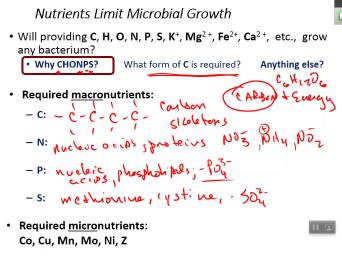 Nutrients Limit Microbial Growth
• Will providing C, H, O, N, P, S, K⁺, Mg²⁺, Fe²⁺, Ca²⁺, etc., grow
any bacterium?
• Why CHONPS? What form of C is required? Anything else?
C₆H₁₂O₆
CARBON + Energy
• Required macronutrients:
– C: -C-C-C-C- Carbon
skeletons
– N: nucleic acids, proteins NO₃⁻, NH₄⁺, NO₂⁻
– P: nucleic acids, phospholipids, -PO₄³⁻
– S: methionine, cystine, -SO₄²⁻
• Required micronutrients:
Co, Cu, Mn, Mo, Ni, Z